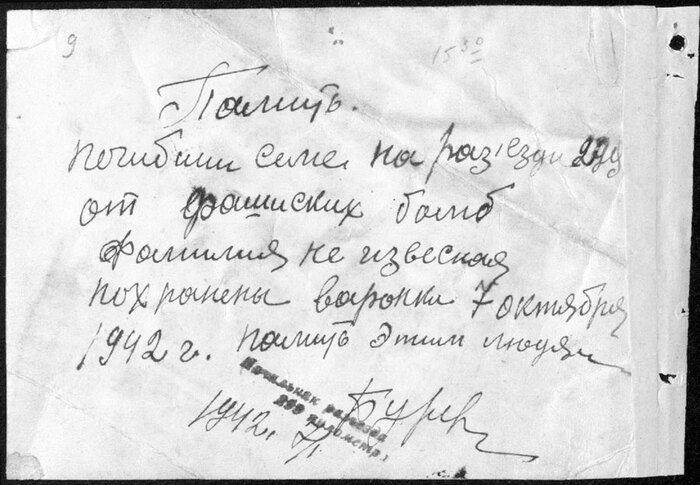 9
15 30
Памить.
погибши семе. на раз'езди
от фашиских бомб
фамилия не извесная
похранены варонки 7 октября
1942 г. памить этим людям
Начальник разъезда
километр
1942.